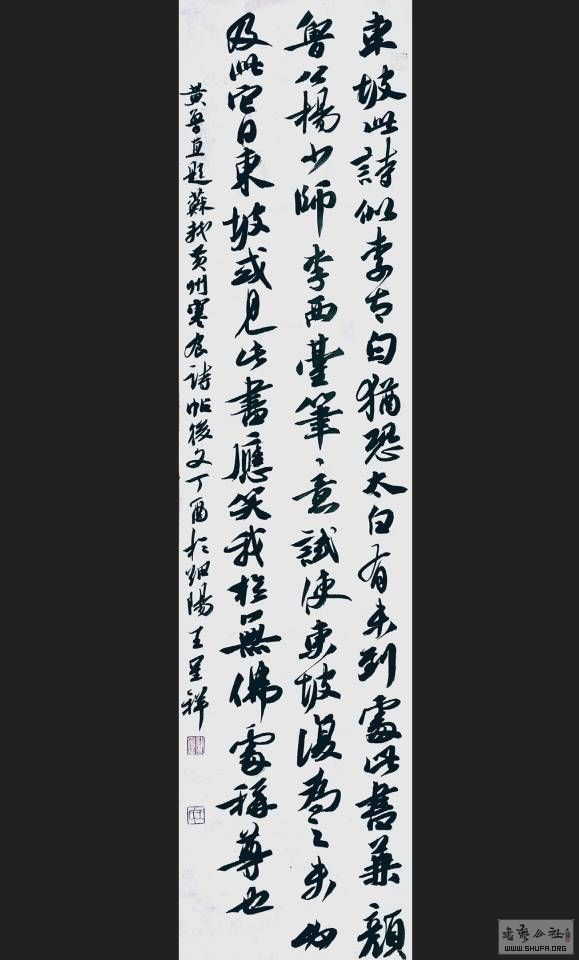 東坡此詩似李太白猶恐太白有未到處此書兼顏
魯公楊少師李西臺筆意試使東坡復為之未必
及此它日東坡或見此書應笑我於無佛處稱尊也
黃魯直題蘇軾黃州寒食詩帖後文丁酉於細陽王祥
書藝公社
WWW.SHUFA.ORG